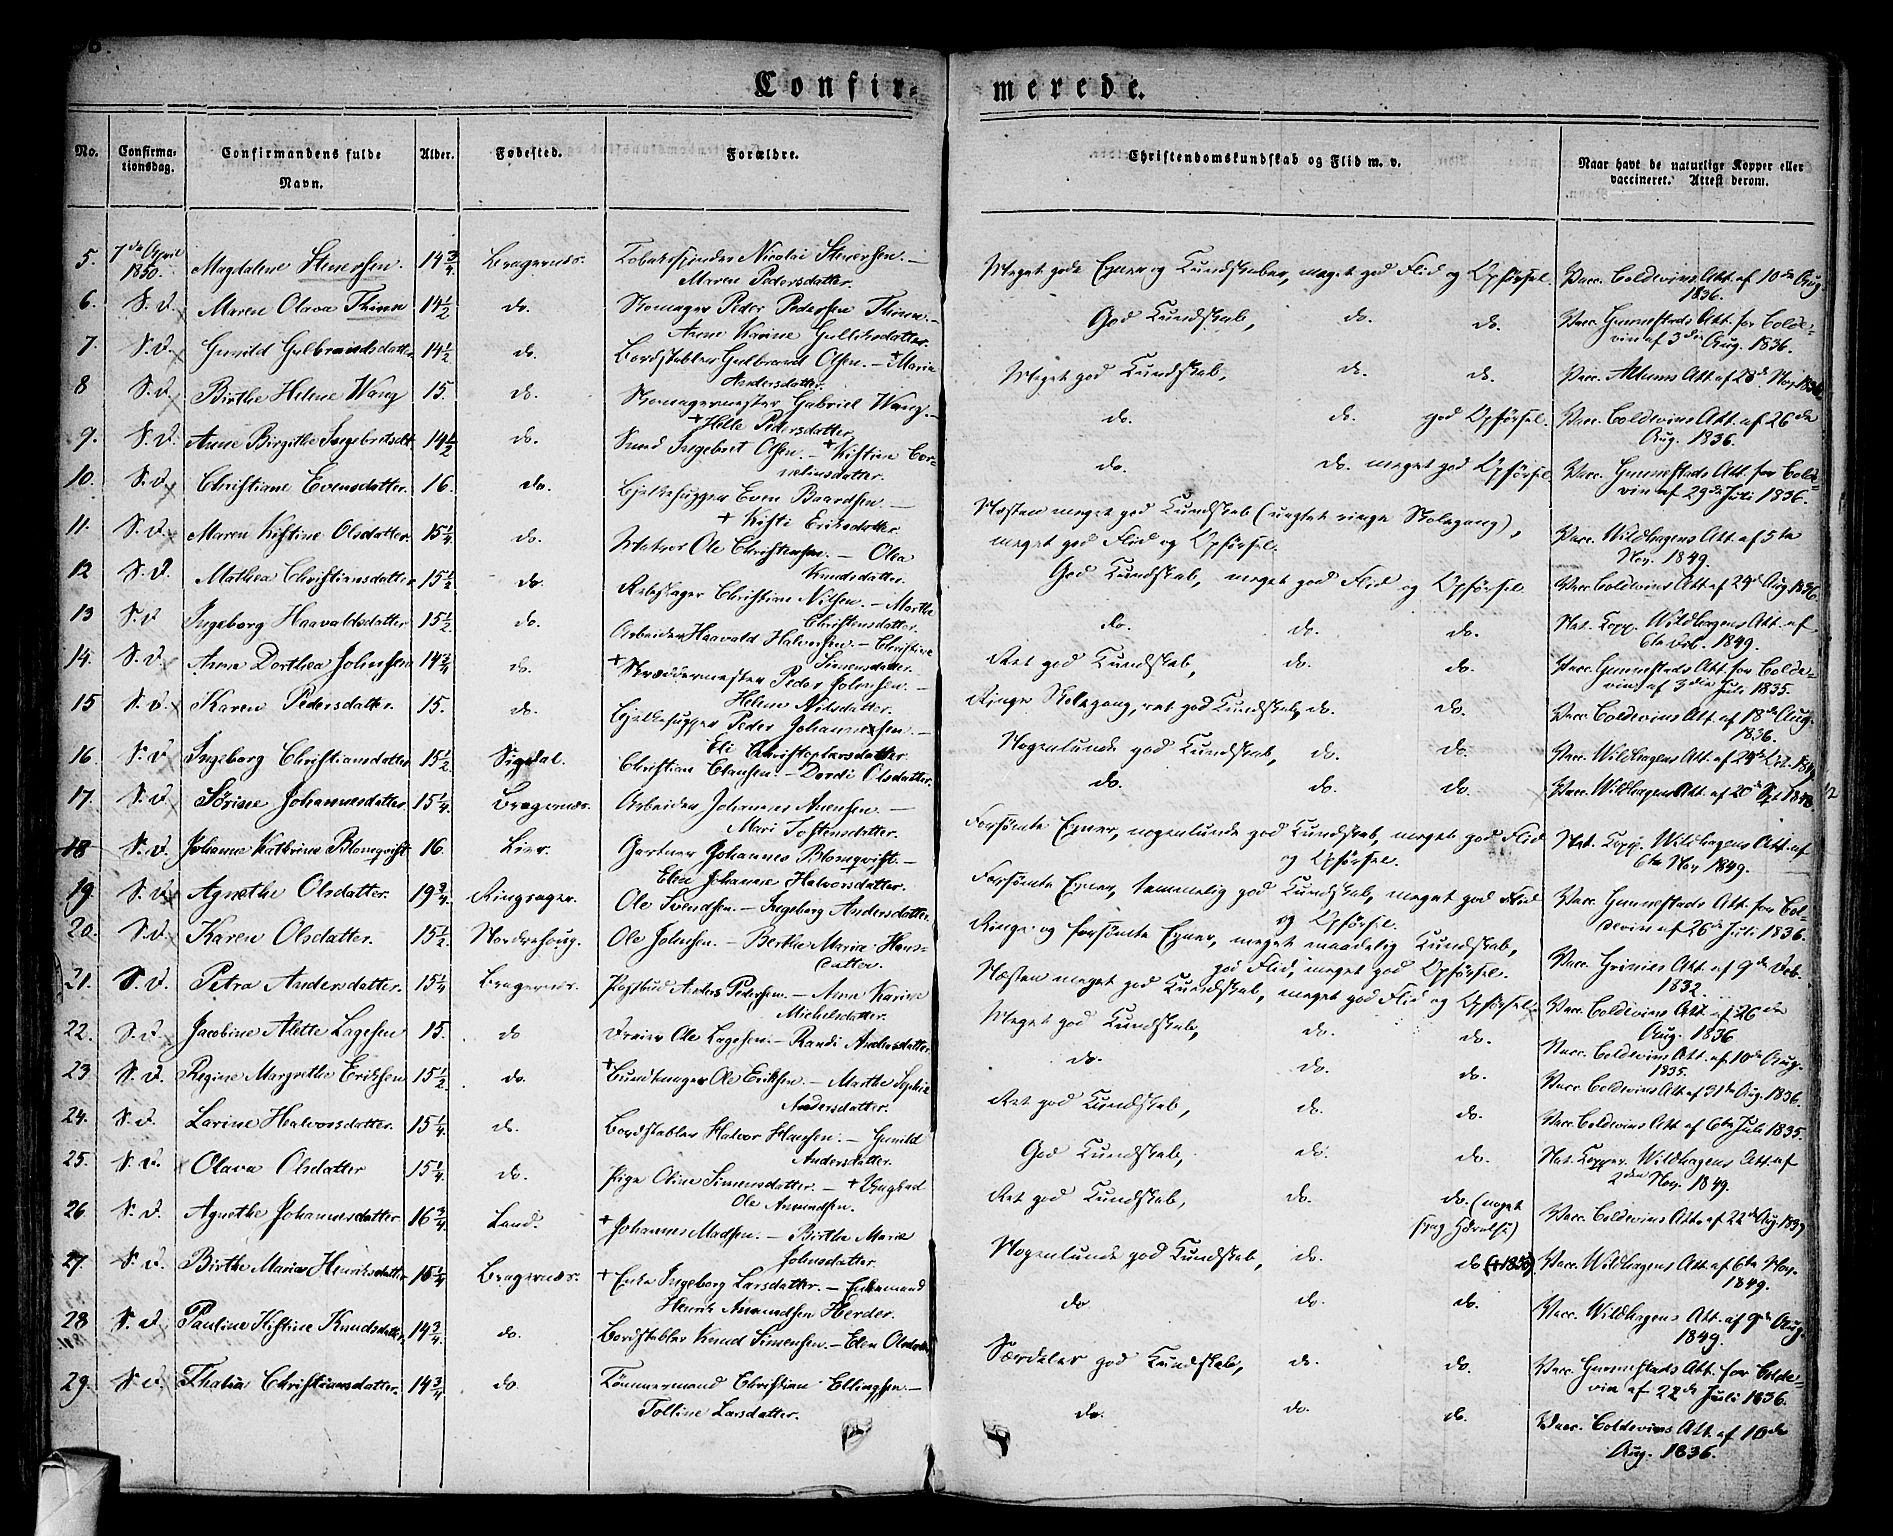 Confir-
merede.
No.
Confirma-
tionsdag.
Confirmandens fulde
Navn.
Alder.
Fødested.
Forældre.
Christendomskundskab og Flid m. v.
Naar havt de naturlige Kopper eller
vaccineret. Attest derom.
5. 7de April 1850. Magdalene Stenersen. 14 3/4 Bragernæs. Tobaksspinder Nicolai Stenersen. —
Maren Pedersdatter.
Meget gode Evner og Kundskaber, meget god Flid og Opførsel. Vacc. Coldevins Att. af 10de Aug.
1836.
6. S. D. Maren Olava Thinn 14 1/2 do. Skomager Peder Pedersen Thinn. —
Anne Karine Gulliksdatter.
God Kundskab, do. do. Vacc. Gunnestads Att. for Colde-
vin af 3die Aug. 1836.
7. S. D. Gunild Gulbrandsdatter 14 1/2 do. Bordstabler Gulbrand Olsen. — + Maria
Andersdatter.
Meget god Kundskab, do. do. Vacc. Att. af 28de Nov. 1836
8 S. D. Birthe Helene Wang 15. do. Skomagermester Gabriel Wang. —
+ Helle Pedersdatter
do. do. god Opførsel. Vacc. Coldevins Att. af 26de
Aug. 1836.
9. S. D. Anne Birgithe Ingebretsdt. 14 1/2 do. Smed Ingebret Olsen. — + Kistine Cor-
neliusdatter.
do. do. meget god Opførsel Vacc. Gunnestads Att. for Colde-
vin af 29de Juli 1836.
10. S. D. Christiane Evensdatter. 16. do. Bjelkehugger Even Baardsen. —
+ Kisti Eriksdatter
Næsten meget god Kundskab (uagtet ringe Skolegang),
meget god Flid og Opførsel.
Vacc. Wildhagens Att. af 5te
Nov. 1849.
11. S. D. Maren Kistine Olsdatter. 15 1/4. do. Matros Ole Christensen. — Olea
Knudsdatter.
God Kundskab, meget god Flid og Opførsel. Vacc. Coldevins Att. af 24de Aug. 1836.
12 S. D. Mathea Christiansdatter 15 1/2 do. Rebslager Christian Nilsen. — Marthe
Christensdatter.
do. do. do. Nat. Kopp. Wildhagens Att. af
6te Feb. 1849.
13 S. D Ingeborg Haavaldsdatter 15 1/2 do. Arbeider Haavald Halvorsen — Christine
Simensdatter.
Ret god Kundskab, do. do. Vacc. Gunnestads Att. for Colde-
vin af 3die Juli 1835.
14. S. D. Anne Dorthea Johnsen 14 3/4 do. + Skræddermester Peder Johnsen. —
Helene Nilsdatter.
Ringe Skolegang, ret god Kundskab, do. do. Vacc. Coldevins Att. af 18de Aug.
1836.
15 S. D. Karen Pedersdatter. 15. do. Bjelkehugger Peder Johannesen. —
Eli Christophersdatter
Nogenlunde god Kundskab, do. do. Vacc. Wildhagens Att. af 24de Oct. 1849
16 S. D Ingeborg Christiansdatter 15 1/2 Sigdal. Christian Clausen. — Dordi Olsdatter.
do. do. do. Vacc. Wildhagens Att. af 20de Spt 1848
17. S. D. Sørine Johannesdatter 15 1/4 Bragernæs. Arbeider Johannes —
Mari Tostensdatter.
Forsømte Evner, nogenlunde god Kundskab, meget god Flid
og Opførsel.
Nat. Kopp. Wildhagens Att. af
6te Nov. 1849.
18 S. D. Johanne Kathrine Blomqvist 16. Lier. Gartner Johannes Blomqvist. —
Elen Johanne Halvorsdatter.
Forsømte Evner, temmelig god Kundskab, meget god Flid
og Opførsel.
Vacc. Gunnestads Att. for Col-
devin af 26de Juli 1836.
19. S. D. Agnethe Olsdatter. 19 3/4. Ringsager. Ole Svendsen. — Ingeborg Andersdatter.
Ringe og forsømte Evner, meget maadelig Kundskab,
god Flid, meget god Opførsel.
Vacc. Att. af 9de Feb.
1832.
20. S. D. Karen Olsdatter. 15 1/2. Norderhoug. Ole Johnsen. — Berthe Maria Hans-
datter.
Næsten meget god Kundskab, meget god Flid og Opførsel. Vacc. Coldevins Att. af 26de
Aug. 1836
21. S. D. Petra Andersdatter. 15 1/4 Bragernæs. Postbud Anders Pedersen. — Anne Karine
Michelsdatter.
Meget god Kundskab, do. do. Vacc. Coldevins Att. af 10de Aug.
1835.
22. S. D. Jacobine Alette Lagesen 15. do Dreier Ole Lagesen. — Randi Andersdatter
do. do. do. Vacc. Coldevins Att. af 31te Aug. 1836.
23 S. D. Regine Margrethe Eriksen 15 1/2 do. + Buntmager Ole Eriksen. — Marthe Sophie
Andersdatter.
Ret god Kundskab, do. do. Vacc. Coldevins Att. af 6te Juli 1835.
24. S. D. Larine Halvorsdatter. 15 1/4. do. Bordstabler Halvor Hansen. — Gunild
Andersdatter.
God Kundskab, do. do. Nat. Kopper. Wildhagens Att. af
2den Nov. 1849.
25. S. D. Olava Olsdatter 15 1/4. do. Pige Oline Simensdatter. — + Ungkarl
Ole Amundsen.
Ret god Kundskab, do. do. (meget
svag Hørelse)
Vacc. Coldevins Att. af 22de Aug. 1837
26 S. D. Agnethe Johannesdatter 16 3/4 Land. + Johannes Madsen. — Birthe Marie
Johnsdatter.
Nogenlunde god Kundskab, do. do Vacc. Wildhagens Att. af 6te Nov.
1849.
27. S. D. Birthe Marie Henriksdatter 15 1/4 Bragernæs. + Enke Ingeborg Larsdatter. — Enkemand
Henrik Amundsen Herder.
do. do. do. Vacc. Wildhagens Att. af 9de Aug.
1849.
28 S. D. Pauline Kistine Knudsdatter, 14 3/4 do. Bordstabler Knud Simensen. — Elen Olsdatter
Særdeles god Kundskab, do. do. Vacc. Gunnestads Att. for Colde-
vin af 22de Juli 1836.
29. S. D. Thalia Christiansdatter. 14 3/4 do Tømmermand Christian Ellingsen. —
Tolline Larsdatter.
do. do. do. Vacc. Coldevins Att. af 10de
Aug. 1836.